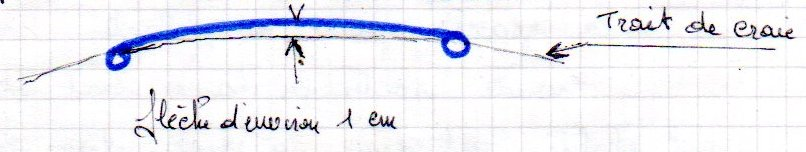 Trait de craie
flèche d'environ 1 cm